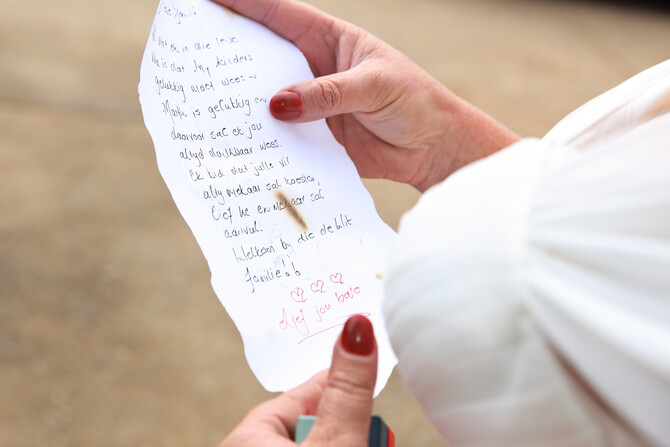 wat ek in die lewe
is dat my kinders
gelukkig moet wees
Martin is gelukkig en
daarvoor sal ek jou
altyd dankbaar wees.
Ek bid dat julle vir
altyd mekaar sal koester,
lief he en mekaar sal
aanvul.
Welkom by die de Wit
familie!!
Lief jou baie